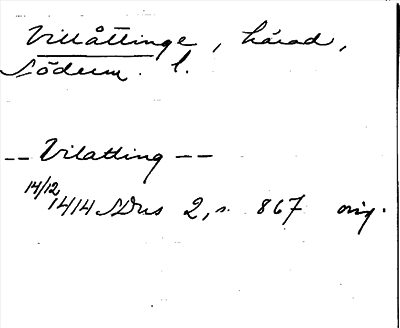 Villåttinge, härad,
Söderm. l.
-- Vilatting --
14/12 1414 SDns 2, s. 867 orig.